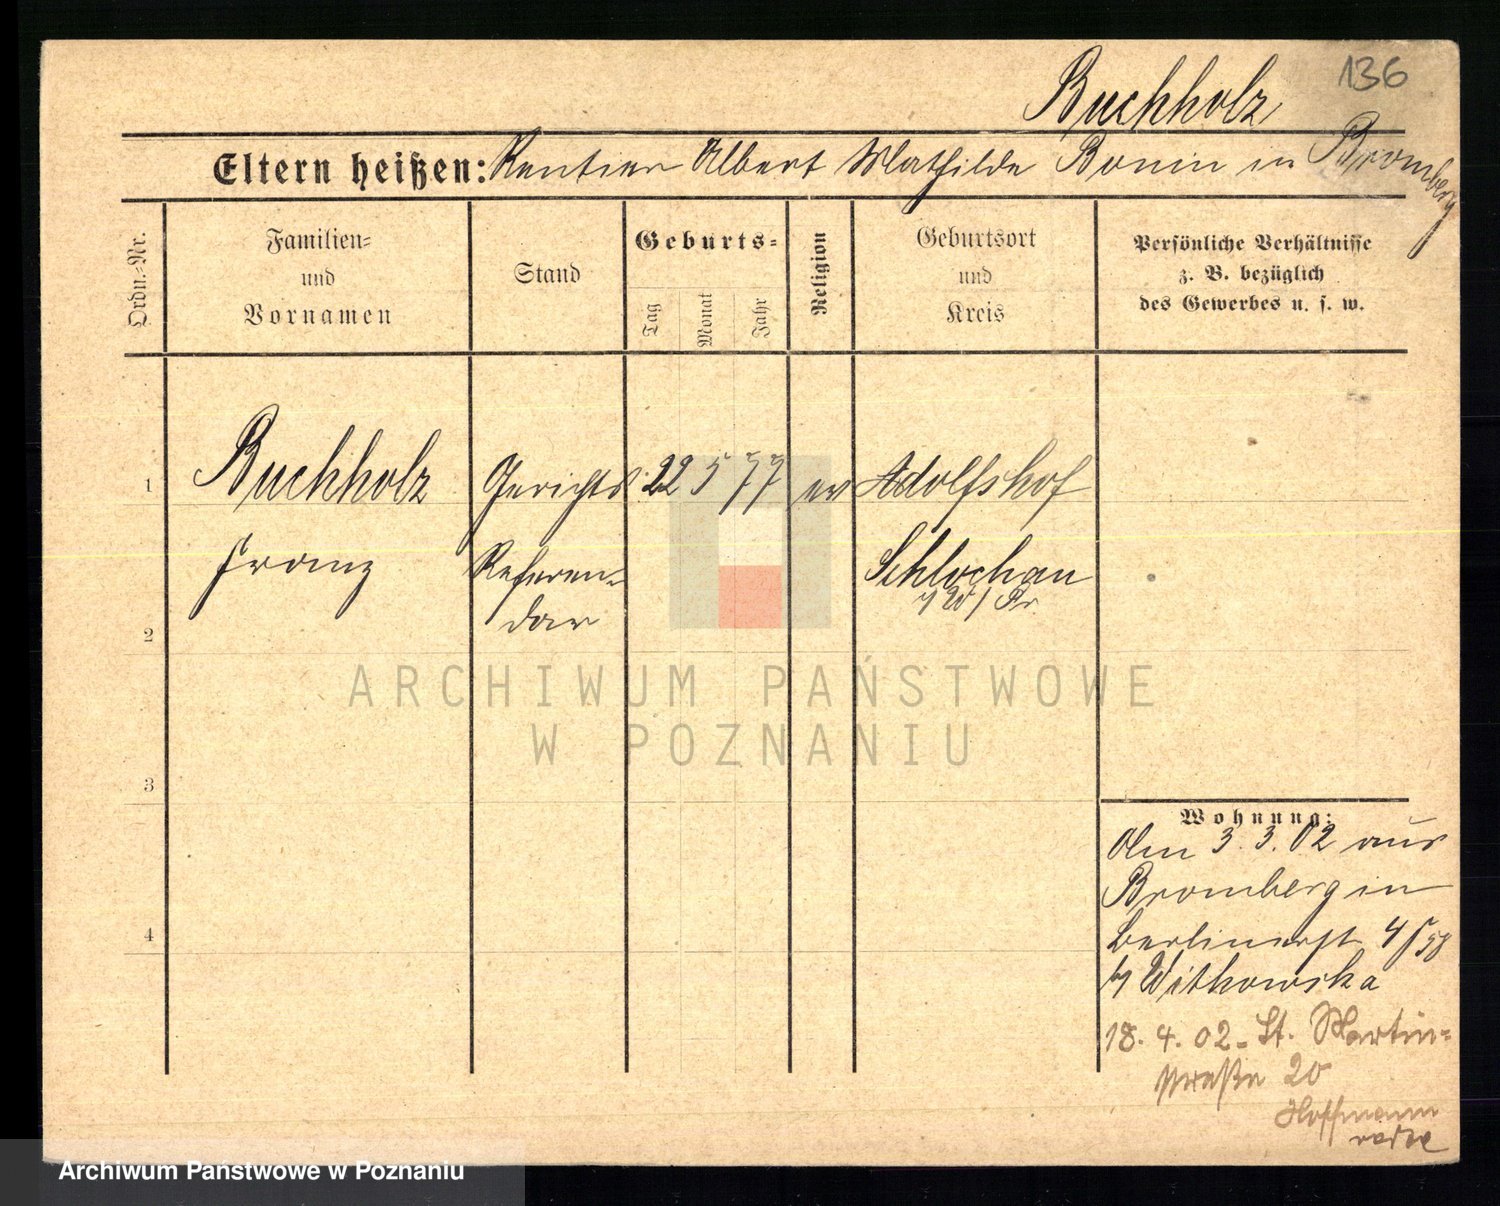 136
Buchholz
Eltern heißen: Rentier Albert Mathilde Bonin in Bromberg
Ordn.-Nr.
Familien-
und
Vornamen
Stand
Geburts-
Tag
Monat
Jahr
Religion
Geburtsort
und
Kreis
Persönliche Verhältnisse
z. B. bezüglich
des Gewerbes u. s. w.
1
Buchholz
Gerichts
22 5 77
ev
Adolfshof
Franz
Referen-
dar
Schlochau
W/Pr
2
3
4
ARCHIWUM PAŃSTWOWE
W POZNANIU
Wohnung:
Am 3.3.02 aus
Bromberg in
Berlinerst 4
Witkowska
18. 4. 02 - St. Martin-
straße 20
Hoffmann
Archiwum Państwowe w Poznaniu